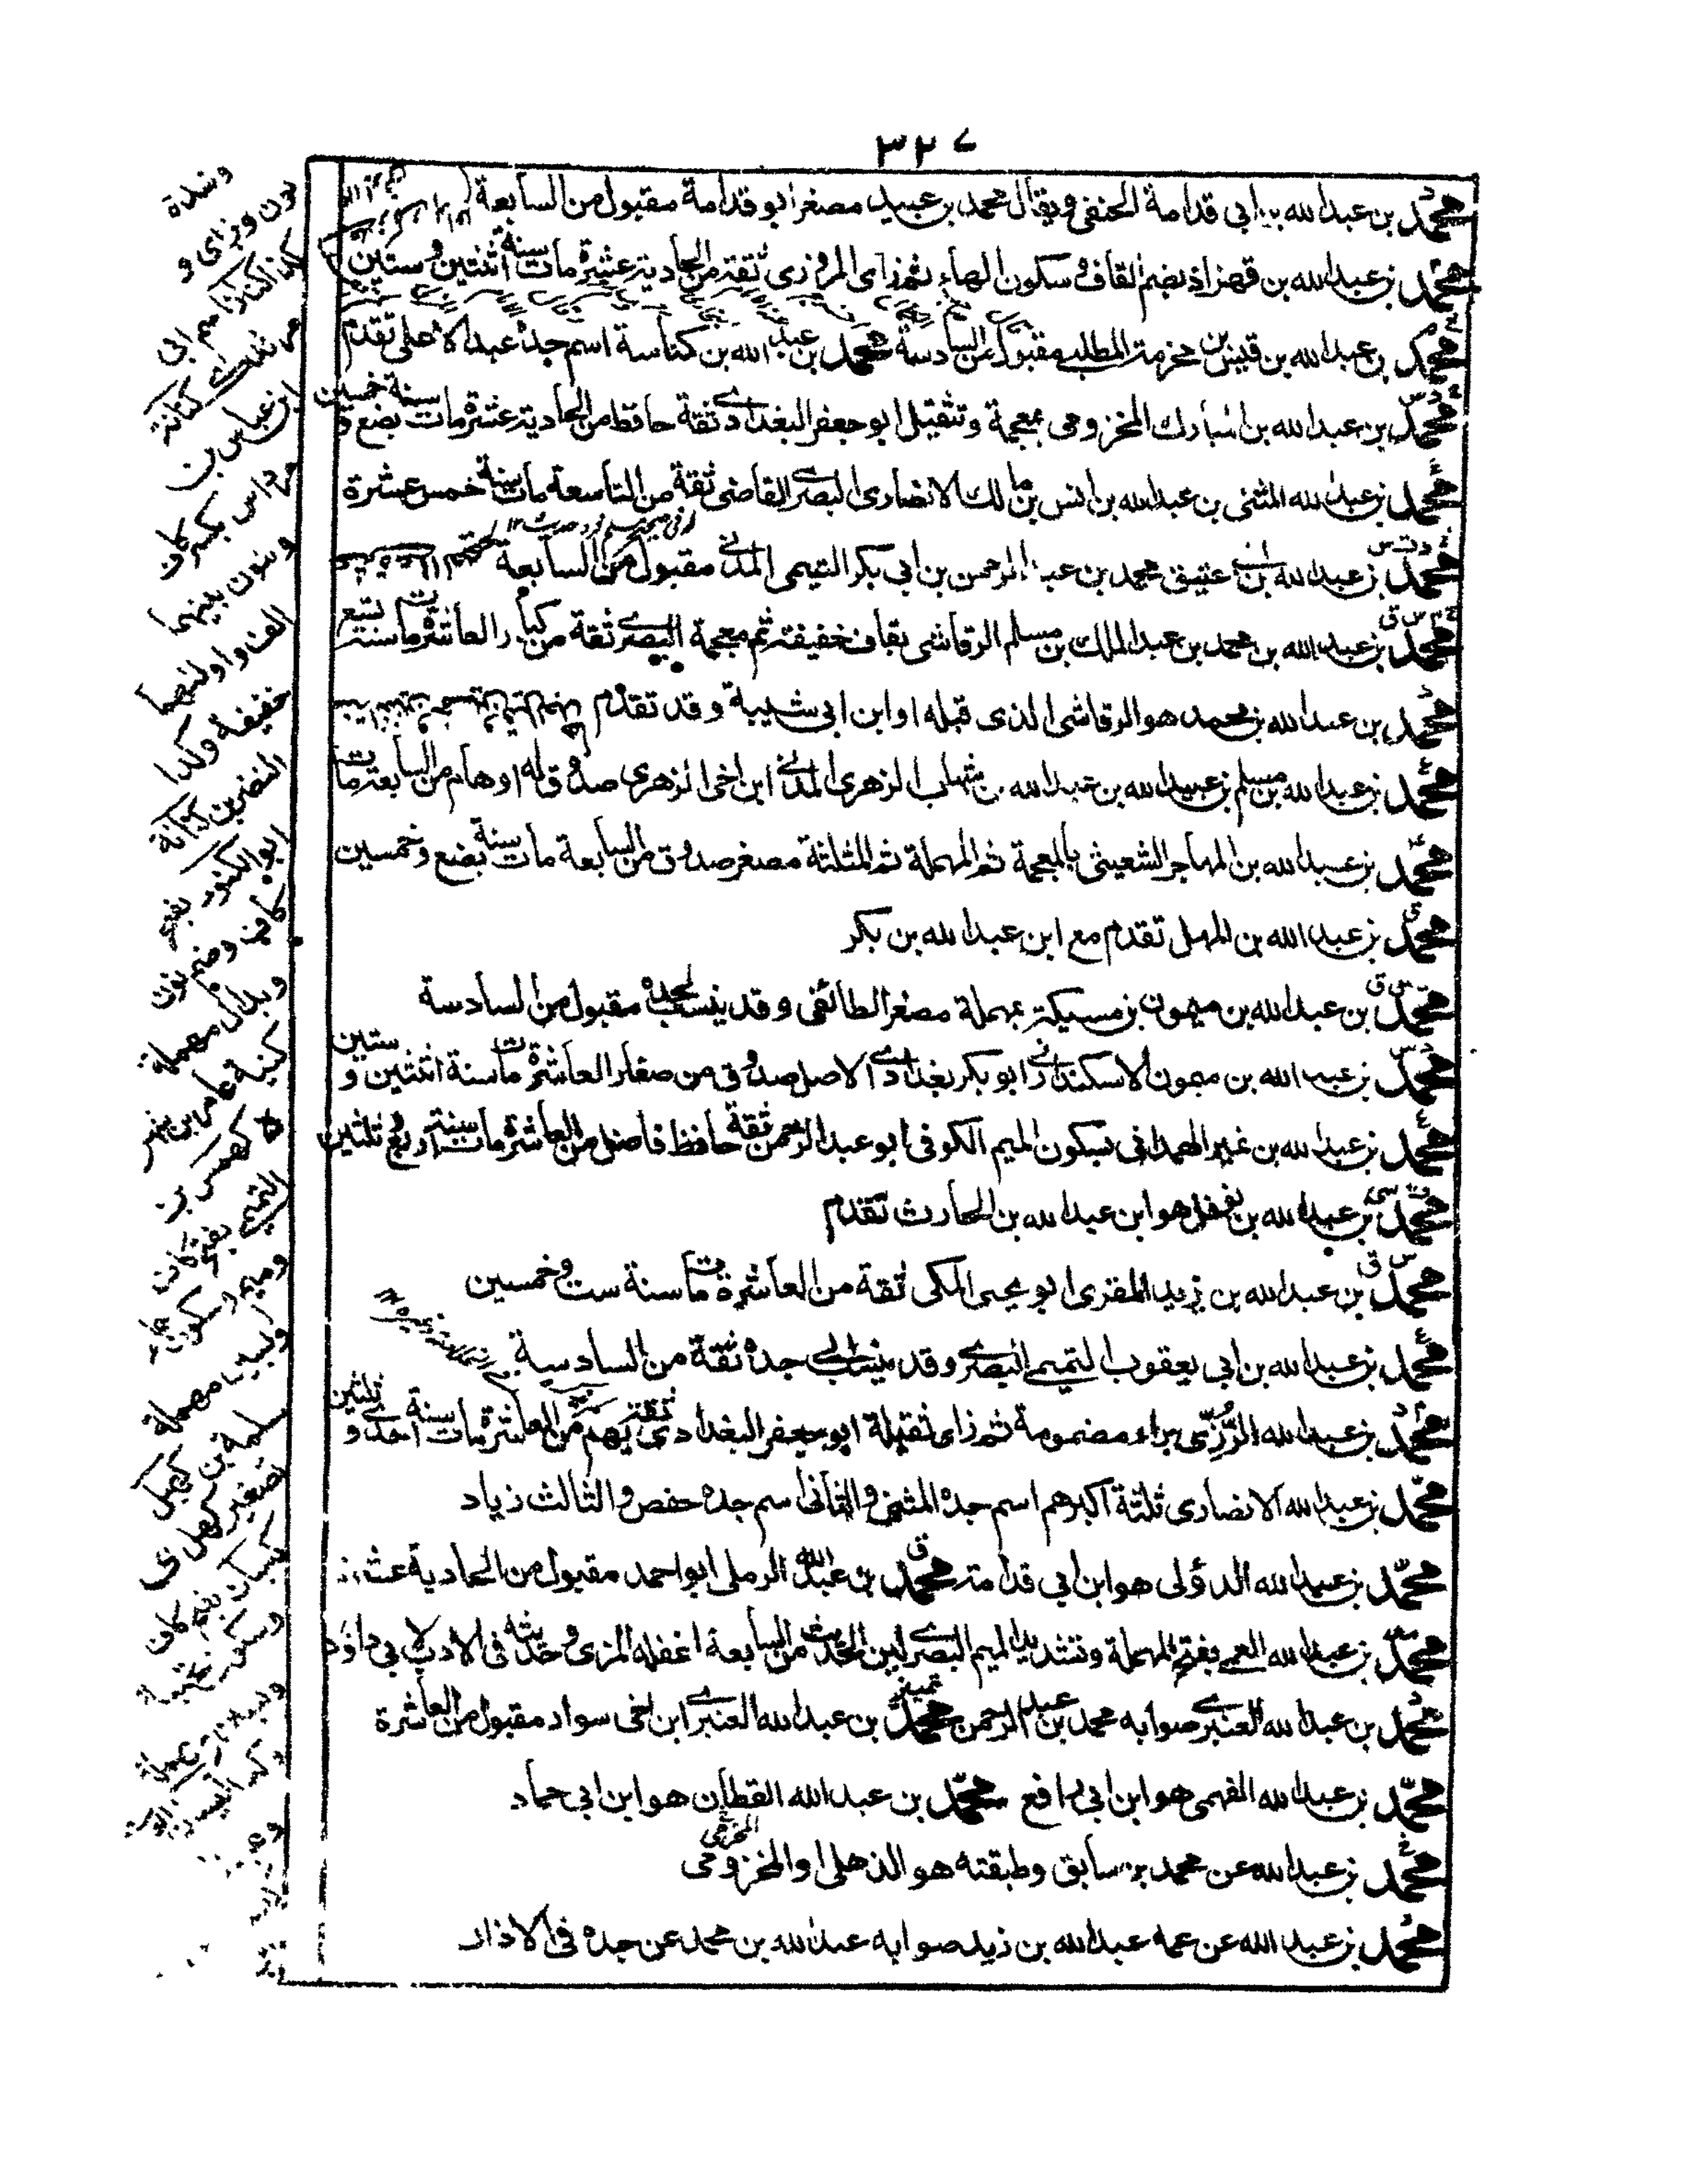 ٣٢٧
محمد بن عبد الله بن ابى قدامة الحنفى ويقال محمد بن عبيد مصغر ابو قدامة مقبول من السابعة
محمد بن عبد الله بن قهزاذ بضم القاف وسكون الهاء ثم زاى المروزى ثقة من الحادية عشرة مات سنة اثنتين وستين
محمد بن عبد الله بن قيس بن مخرمة المطلبى مقبول من السادسة محمد بن عبد الله بن كناسة اسم جده عبد الاعلى تقدم
محمد بن عبد الله بن المبارك المخزومى بمعجمة وتثقيل ابو جعفر البغدادى ثقة حافظ من الحادية عشرة مات سنة بضع و خمسين
محمد بن عبد الله المثنى بن عبد الله بن انس بن مالك الانصارى البصرى القاضى ثقة من التاسعة مات سنة خمس عشرة
محمد بن عبد الله بن ابى عتيق محمد بن عبد الرحمن بن ابى بكر التيمى المدنى مقبول من السابعة
محمد بن عبد الله بن محمد بن عبد الملك بن مسلم الرقاشى بقاف خفيفة ثم معجمة البصرى ثقة من كبار العاشرة مات سنة تسع
محمد بن عبد الله بن محمد هو الرقاشى الذى قبله او ابن ابى شيبة وقد تقدم
محمد بن عبد الله بن مسلم بن عبيد الله بن عبد الله بن شهاب الزهرى المدنى ابن اخى الزهرى صدوق له اوهام من السابعة مات
محمد بن عبد الله بن المهاجر الشعيثى بالمعجمة ثم المهملة ثم المثلثة مصغر صدوق من السابعة مات سنة بضع وخمسين
محمد بن عبد الله بن المهل تقدم مع ابن عبد الله بن بكر
محمد بن عبد الله بن ميمون بن مسيكة بمهملة مصغر الطائفى وقد ينسب لجده مقبول من السادسة
محمد بن عبد الله بن ميمون الاسكندرانى ابو بكر بغدادى الاصل صدوق من صغار العاشرة مات سنة اثنتين و ستين
محمد بن عبد الله بن نمير الهمدانى بسكون الميم الكوفى ابو عبد الرحمن ثقة حافظ فاضل من العاشرة مات سنة اربع وثلثين
محمد بن عبد الله بن نوفل هو ابن عبد الله بن الحارث تقدم
محمد بن عبد الله بن يزيد المقرى ابو يحيى المكى ثقة من العاشرة مات سنة ست وخمسين
محمد بن عبد الله بن ابى يعقوب التميمى البصرى وقد ينسب الى جده ثقة من السادسة
محمد بن عبد الله الرُّزّى براء مضمومة ثم زاى ثقيلة ابو جعفر البغدادى ثقة يهم من العاشرة مات سنة احدى و ثلثين
محمد بن عبد الله الانصارى ثلثة اكبرهم اسم جده المثنى والثانى اسم جده حفص والثالث زياد
محمد بن عبد الله الدؤلى هو ابن ابى قدامة محمد بن عبد الله الرملى ابو احمد مقبول من الحادية عشرة
محمد بن عبد الله العمى بفتح المهملة وتشديد الميم البصرى لين الحديث من السابعة اغفله المزى وحديثه فى الادب لابى داؤد
محمد بن عبد الله العنبرى صوابه محمد بن عبد الرحمن محمد بن عبد الله العنبرى ابن اخى سوار مقبول من العاشرة
محمد بن عبد الله الفهمى هو ابن ابى رافع محمد بن عبد الله القطان هو ابن ابى حماد
محمد بن عبد الله عن محمد بن سابق وطبقته هو الذهلى او المخزومى
محمد بن عبد الله عن عمه عبد الله بن زيد صوابه عبد الله بن محمد عن جده فى الاذان
وشدة
نون وزاى و
ابن عباس بن
مرداس بكسر كاف
ونون بينهما
الف واولهما
خفيفة وكذا
النضر بن كنانة
ابو الكنود بفتح
كاف وضم نون
وبدال مهملة
كنية عامر
كهمس بن
التميمى بفتح كاف
وميم وسكون هاء
وبسين مهملة
سلمة بن كهيل
تصغير كهل